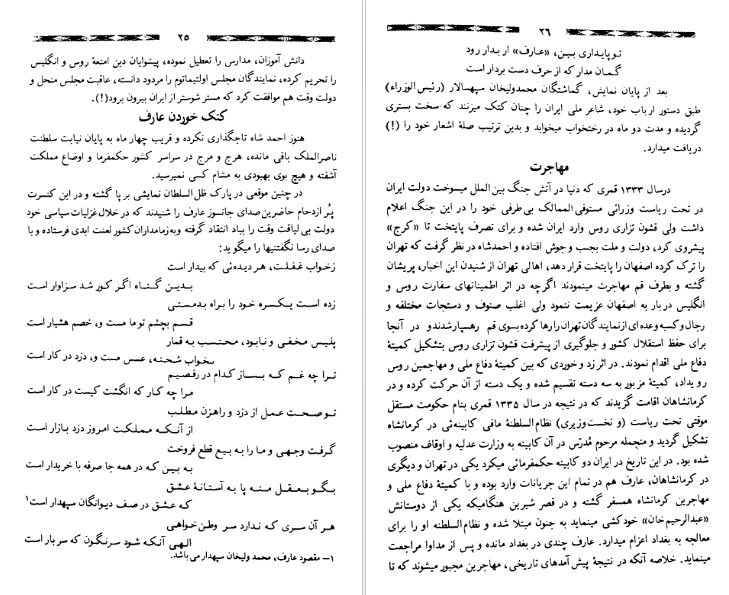 ۲۵
دانش آموزان، مدارس را تعطیل نموده، پیشوایان دین امتعهٔ روس و انگلیس
را تحریم کرده، نمایندگان مجلس اولتیماتوم را مردود دانسته، عاقبت مجلس منحل و
دولت وقت هم موافقت کرد که مستر شوستر از ایران بیرون برود(!).
کتک خوردن عارف
هنوز احمد شاه تاجگذاری نکرده و قریب چهار ماه به پایان نیابت سلطنت
ناصرالملک باقی مانده، هرج و مرج در سراسر کشور حکمفرما و اوضاع مملکت
آشفته و هیچ بوی بهبودی به مشام کسی نمیرسید.
در چنین موقعی در پارک ظل‌السلطان نمایشی بر پا گشته و در این کنسرت
پُر ازدحام حاضرین صدای جانسوز عارف را شنیدند که در خلال غزلیات سیاسی خود
دولت بی‌لیاقت وقت را بباد انتقاد گرفته و به زمامداران کشور لعنت ابدی فرستاده و با
صدای رسا نگفتنیها را میگوید:
زخواب غفلت، هر دیده‌ئی که بیدار است
بدین گناه اگر کور شد سزاوار است
زده است یکسره خود را براه بدمستی
قسم بچشم تو ما مست و، خصم هشیار است
پلیس مخفی و نابود، محتسب به قمار
بخواب شحنه، عسس مست و، دزد در کار است
ترا چه غم که بساز کدام در رقصیم
مرا چه کار که انگشت کیست در کار است
تو صحبت عمل از دزد و راهزن مطلب
از آنکه مملکت امروز دزد بازار است
گرفت وجهی و ما را به بیع قطع فروخت
به بین که در همه جا صرفه با خریدار است
بگو بعقل منه پا به آستانهٔ عشق
که عشق در صف دیوانگان سپهدار است۱
هر آن سری که ندارد سر وطن‌خواهی
الهی آنکه شود سرنگون که سر بار است
۱ــ مقصود عارف، محمد ولیخان سپهدار می‌باشد.
۲۶
تو پایداری بین، «عارف» ار بدار رود
گمان مدار که از حرف دست بردار است
بعد از پایان نمایش، گماشتگان محمدولیخان سپهسالار (رئیس‌الوزراء)
طبق دستور ارباب خود، شاعر ملی ایران را چنان کتک میزنند که سخت بستری
گردیده و مدت دو ماه در رختخواب میخوابد و بدین ترتیب صلهٔ اشعار خود را (!)
دریافت میدارد.
مهاجرت
درسال ۱۳۳۳ قمری که دنیا در آتش جنگ بین الملل میسوخت دولت ایران
در تحت ریاست وزرائی مستوفی‌الممالک بی‌طرفی خود را در این جنگ اعلام
داشت ولی قشون تزاری روس وارد ایران شده و برای تصرف پایتخت تا «کرج»
پیشروی کرد، دولت و ملت بجنب و جوش افتاده و احمدشاه در نظر گرفت که تهران
را ترک کرده اصفهان را پایتخت قرار دهد، اهالی تهران از شنیدن این اخبار، پریشان
گشته و بطرف قم مهاجرت مینمودند اگرچه در اثر اطمینانهای سفارت روس و
انگلیس دربار به اصفهان عزیمت ننمود ولی اغلب صنوف و دستجات مختلفه و
رجال و کسبه و عده‌ای از نمایندگان تهران را رها کرده بسوی قم رهسپار شدند و در آنجا
برای حفظ استقلال کشور و جلوگیری از پیشرفت قشون تزاری روس بتشکیل کمیتهٔ
دفاع ملی اقدام نمودند. در اثر زد و خوردی که بین کمیتهٔ دفاع ملی و مهاجمین روس
رویداد، کمیتهٔ مزبور به سه دسته تقسیم شده و یک دسته از آن حرکت کرده و در
کرمانشاهان اقامت گزیدند که در نتیجه در سال ۱۳۳۵ قمری بنام حکومت مستقل
موقتی تحت ریاست (و نخست‌وزیری) نظام‌السلطنهٔ مافی کابینه‌ئی در کرمانشاه
تشکیل گردید و منجمله مرحوم مُدرّس در آن کابینه به وزارت عدلیه و اوقاف منصوب
شده بود. در این تاریخ در ایران دو کابینه حکمفرمائی میکرد یکی در تهران و دیگری
در کرمانشاهان، عارف هم در تمام این جریانات وارد بوده و با کمیتهٔ دفاع ملی و
مهاجرین کرمانشاه همسفر گشته و در قصر شیرین هنگامیکه یکی از دوستانش
«عبدالرحیم‌خان» خودکشی مینماید به جنون مبتلا شده و نظام‌السلطنه او را برای
معالجه به بغداد اعزام میدارد. عارف چندی در بغداد مانده و پس از مداوا مراجعت
مینماید. خلاصه آنکه در نتیجهٔ پیش آمدهای تاریخی، مهاجرین مجبور میشوند که تا